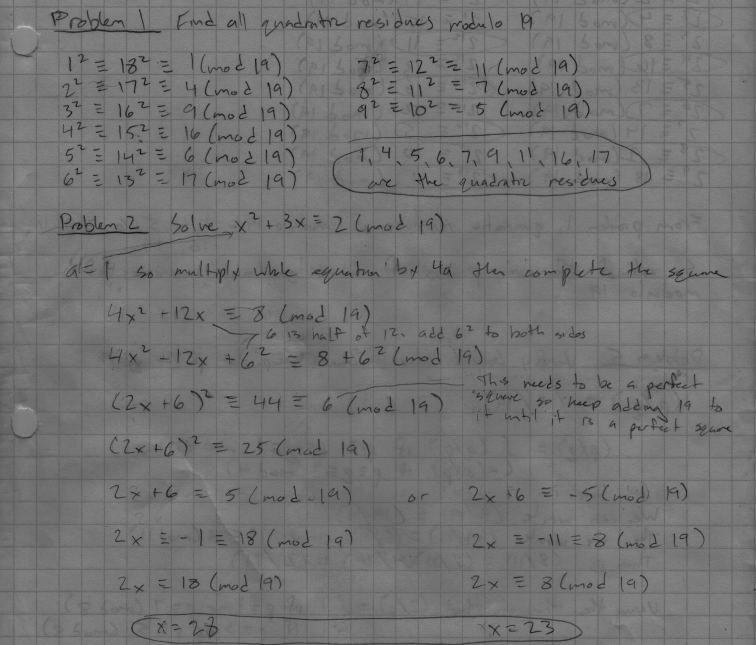 Problem 1 Find all quadratic residues modulo 19
1² ≡ 18² ≡ 1 (mod 19)
2² ≡ 17² ≡ 4 (mod 19)
3² ≡ 16² ≡ 9 (mod 19)
4² ≡ 15² ≡ 16 (mod 19)
5² ≡ 14² ≡ 6 (mod 19)
6² ≡ 13² ≡ 17 (mod 19)
7² ≡ 12² ≡ 11 (mod 19)
8² ≡ 11² ≡ 7 (mod 19)
9² ≡ 10² ≡ 5 (mod 19)
1, 4, 5, 6, 7, 9, 11, 16, 17
are the quadratic residues
Problem 2 Solve x² + 3x ≡ 2 (mod 19)
a=1 so multiply whole equation by 4a then complete the square
4x² + 12x ≡ 8 (mod 19)
6 is half of 12. add 6² to both sides
4x² - 12x + 6² ≡ 8 + 6² (mod 19)
(2x + 6)² ≡ 44 ≡ 6 (mod 19)
This needs to be a perfect
square so keep adding 19 to
it until it is a perfect square
(2x+6)² ≡ 25 (mod 19)
2x + 6 ≡ 5 (mod 19) or 2x + 6 ≡ -5 (mod 19)
2x ≡ -1 ≡ 18 (mod 19) 2x ≡ -11 ≡ 8 (mod 19)
2x ≡ 18 (mod 19) 2x ≡ 8 (mod 19)
x = 28 x = 23